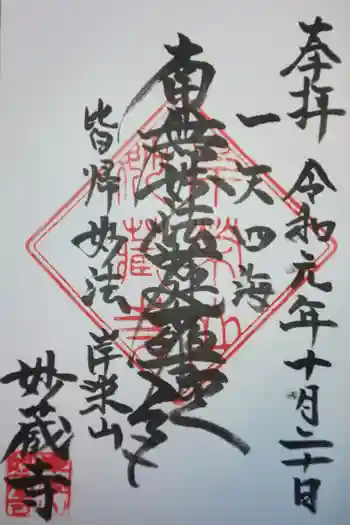 奉拝
令和元年十月二十日
一天四海
南無妙法蓮華経
皆帰妙法
妙蔵寺